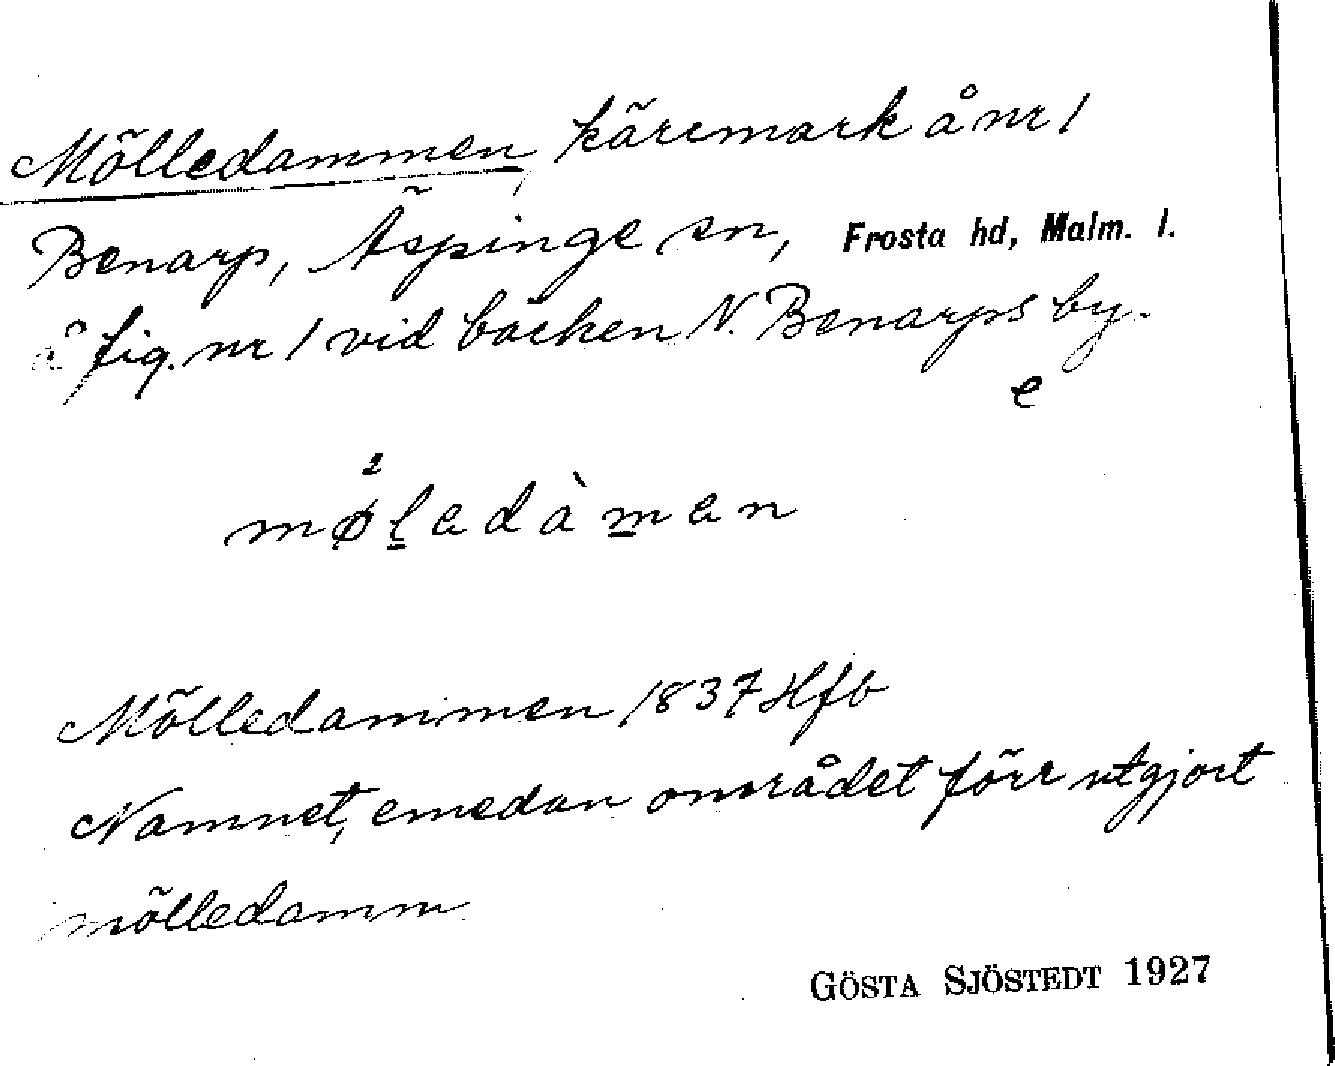 Mölledammen, kärrmark å nr 1
Benarp, Äspinge sn, Frosta hd, Malm. l.
å fig. nr 1 vid bäcken N. Benarps by.
e
2
møledàmen
Mölledammen 1837 Hfb
Namnet, emedan området förr utgjort
mölledamm
GÖSTA SJÖSTEDT 1927